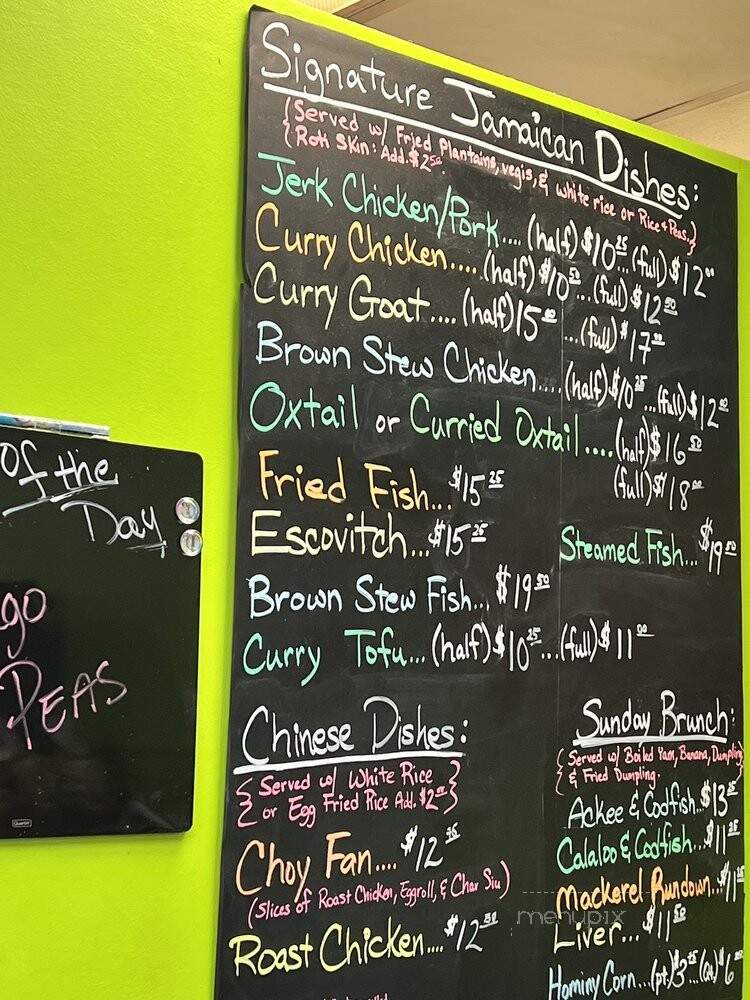 Signature Jamaican Dishes:
{Served w/ Fried Plantains, vegis, & white rice or Rice & Peas.}
{Roti Skin: Add $2.50.
Jerk Chicken/Pork.... (half) $10.25 ... (full) $12.00
Curry Chicken..... (half) $10.50 ... (full) $12.50
Curry Goat.... (half) 15.00 ... (full) $17.00
Brown Stew Chicken.... (half) $10.25 ... (full) $12.00
Oxtail or Curried Oxtail .... (half) $16.50
(full) $18.00
Fried Fish... $15.25
Escovitch... $15.25
Steamed Fish... $19.50
Brown Stew Fish... $19.50
Curry Tofu... (half) $10.25 ... (full) $11.00
Chinese Dishes:
{Served w/ White Rice
or Egg Fried Rice Add. $2.00}
Choy Fan.... $12
(Slices of Roast Chicken, Eggroll, & Char Siu)
Roast Chicken.... $12.50
Sunday Brunch:
{Served w/ Boiled Yam, Banana, Dumpling
& Fried Dumpling.
Ackee & Codfish.. $13
Calaloo & Codfish... $11.25
Mackerel Rundown.. $11
Liver... $11.50
Hominy Corn...(pt.) $3 ...(Qt.) $6
of the
Day
go
PEAS
Quartet
menupix